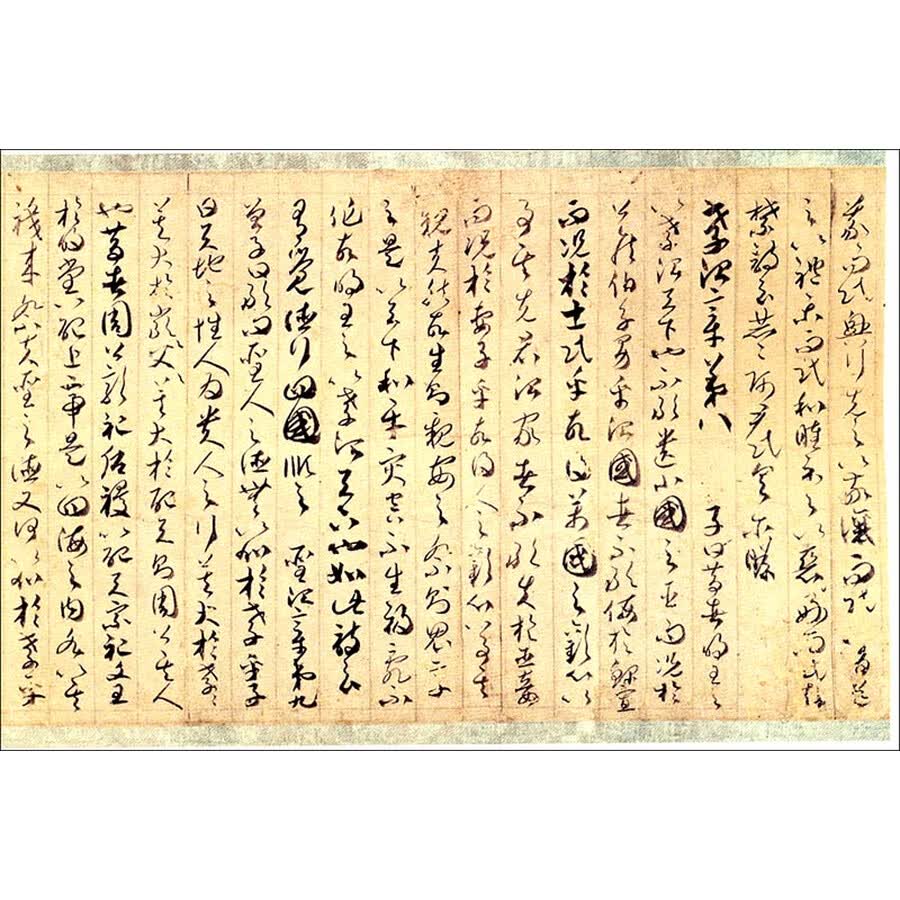 義而民興行先之以敬讓而民不
之以禮樂而民和睦示之以惡好而民知
禁詩云赫々師尹民具爾瞻
孝治章第八 子曰昔者明王之
以孝治天下也不敢遺小國之臣而況於
公侯伯子男乎治國者不敢侮於鰥寡
而況於士民乎故得萬國之歡心以
事其先君治家者不敢失於臣妾
而況於妻子乎故得人之歡心以事其
親夫然故生則親安之祭則鬼享
之是以天下和平灾害不生禍亂不
作故明王之以孝治天下也如此詩云
有覺德行四國順之 聖治章第九
曾子曰敢問聖人之德無以加於孝乎子
曰天地之性人為貴人之行莫大於孝々
莫大於嚴父々莫大於配天則周公其人
也昔者周公郊祀后稷以配天宗祀文王
於明堂以配上帝是以四海之內各以其
職來祭夫聖人之德又何以加於孝乎